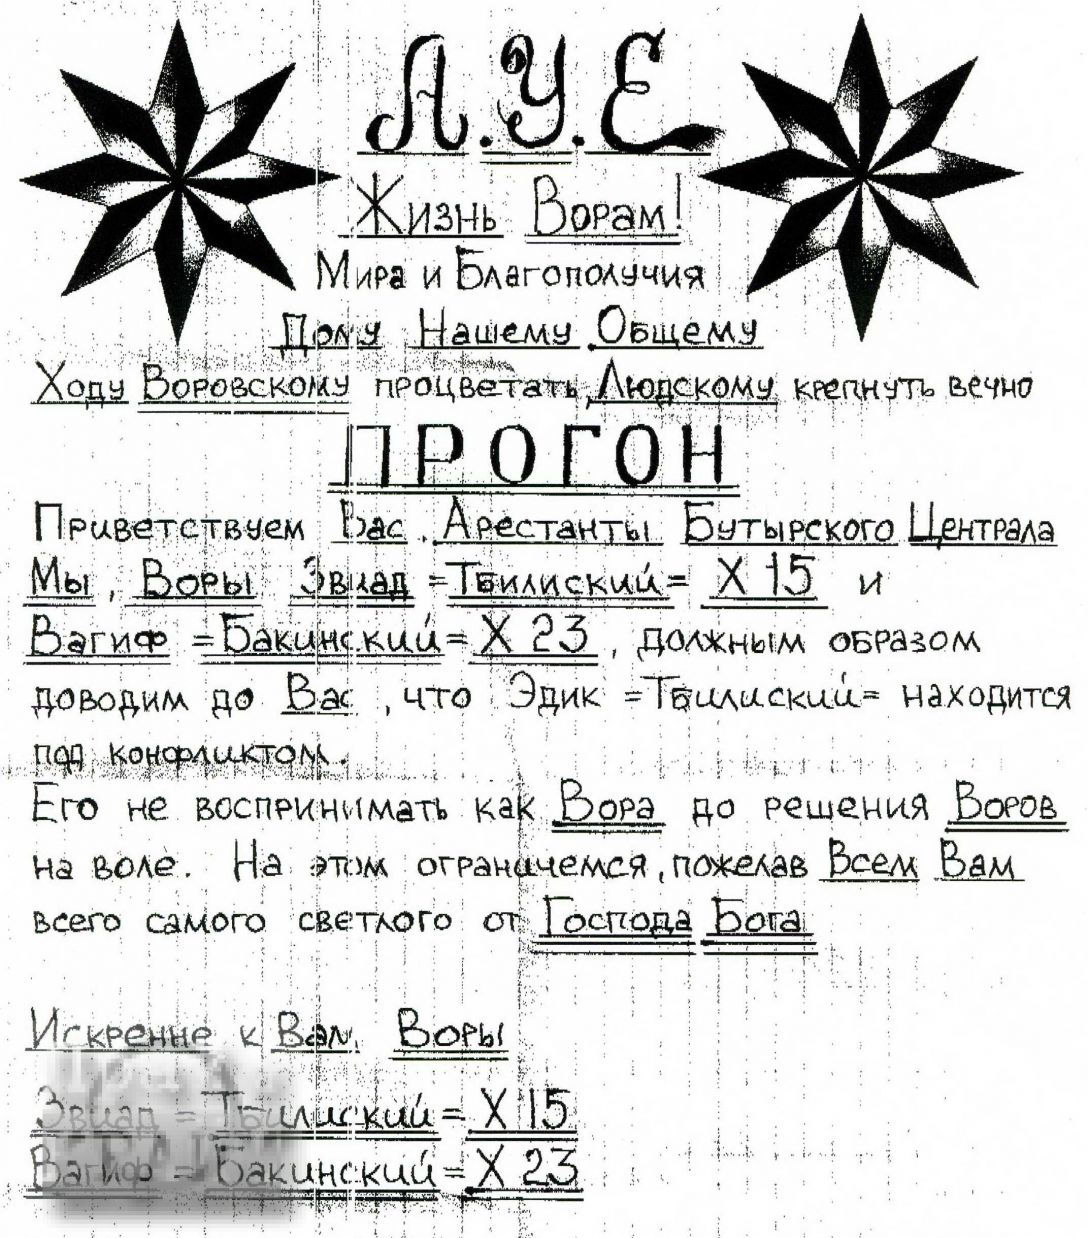 А.У.Е
Жизнь Ворам!
Мира и Благополучия
Дому Нашему Общему
Ходу Воровскому процветать, Людскому крепнуть вечно
ПРОГОН
Приветствуем Вас, Арестанты Бутырского Централа
Мы, Воры Звиад =Тбилиский= Х 15 и
Вагиф =Бакинский= Х 23, должным образом
доводим до Вас, что Эдик =Тбилиский= находится
под конфликтом.
Его не воспринимать как Вора до решения Воров
на воле. На этом ограничемся, пожелав Всем Вам
всего самого светлого от Господа Бога
Искренне к Вам, Воры
Звиад =Тбилиский= Х 15
Вагиф =Бакинский= Х 23